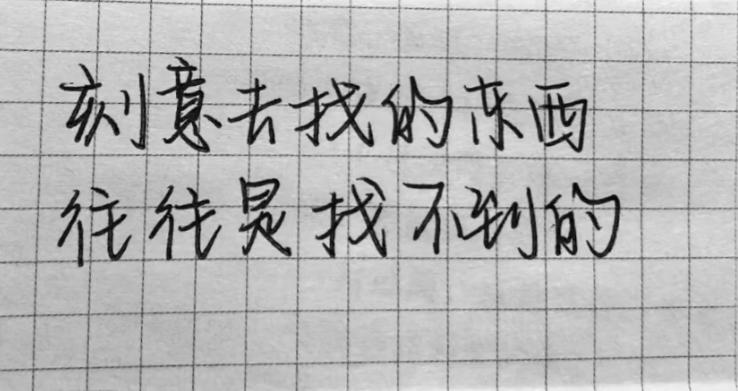 刻意去找的东西
往往是找不到的